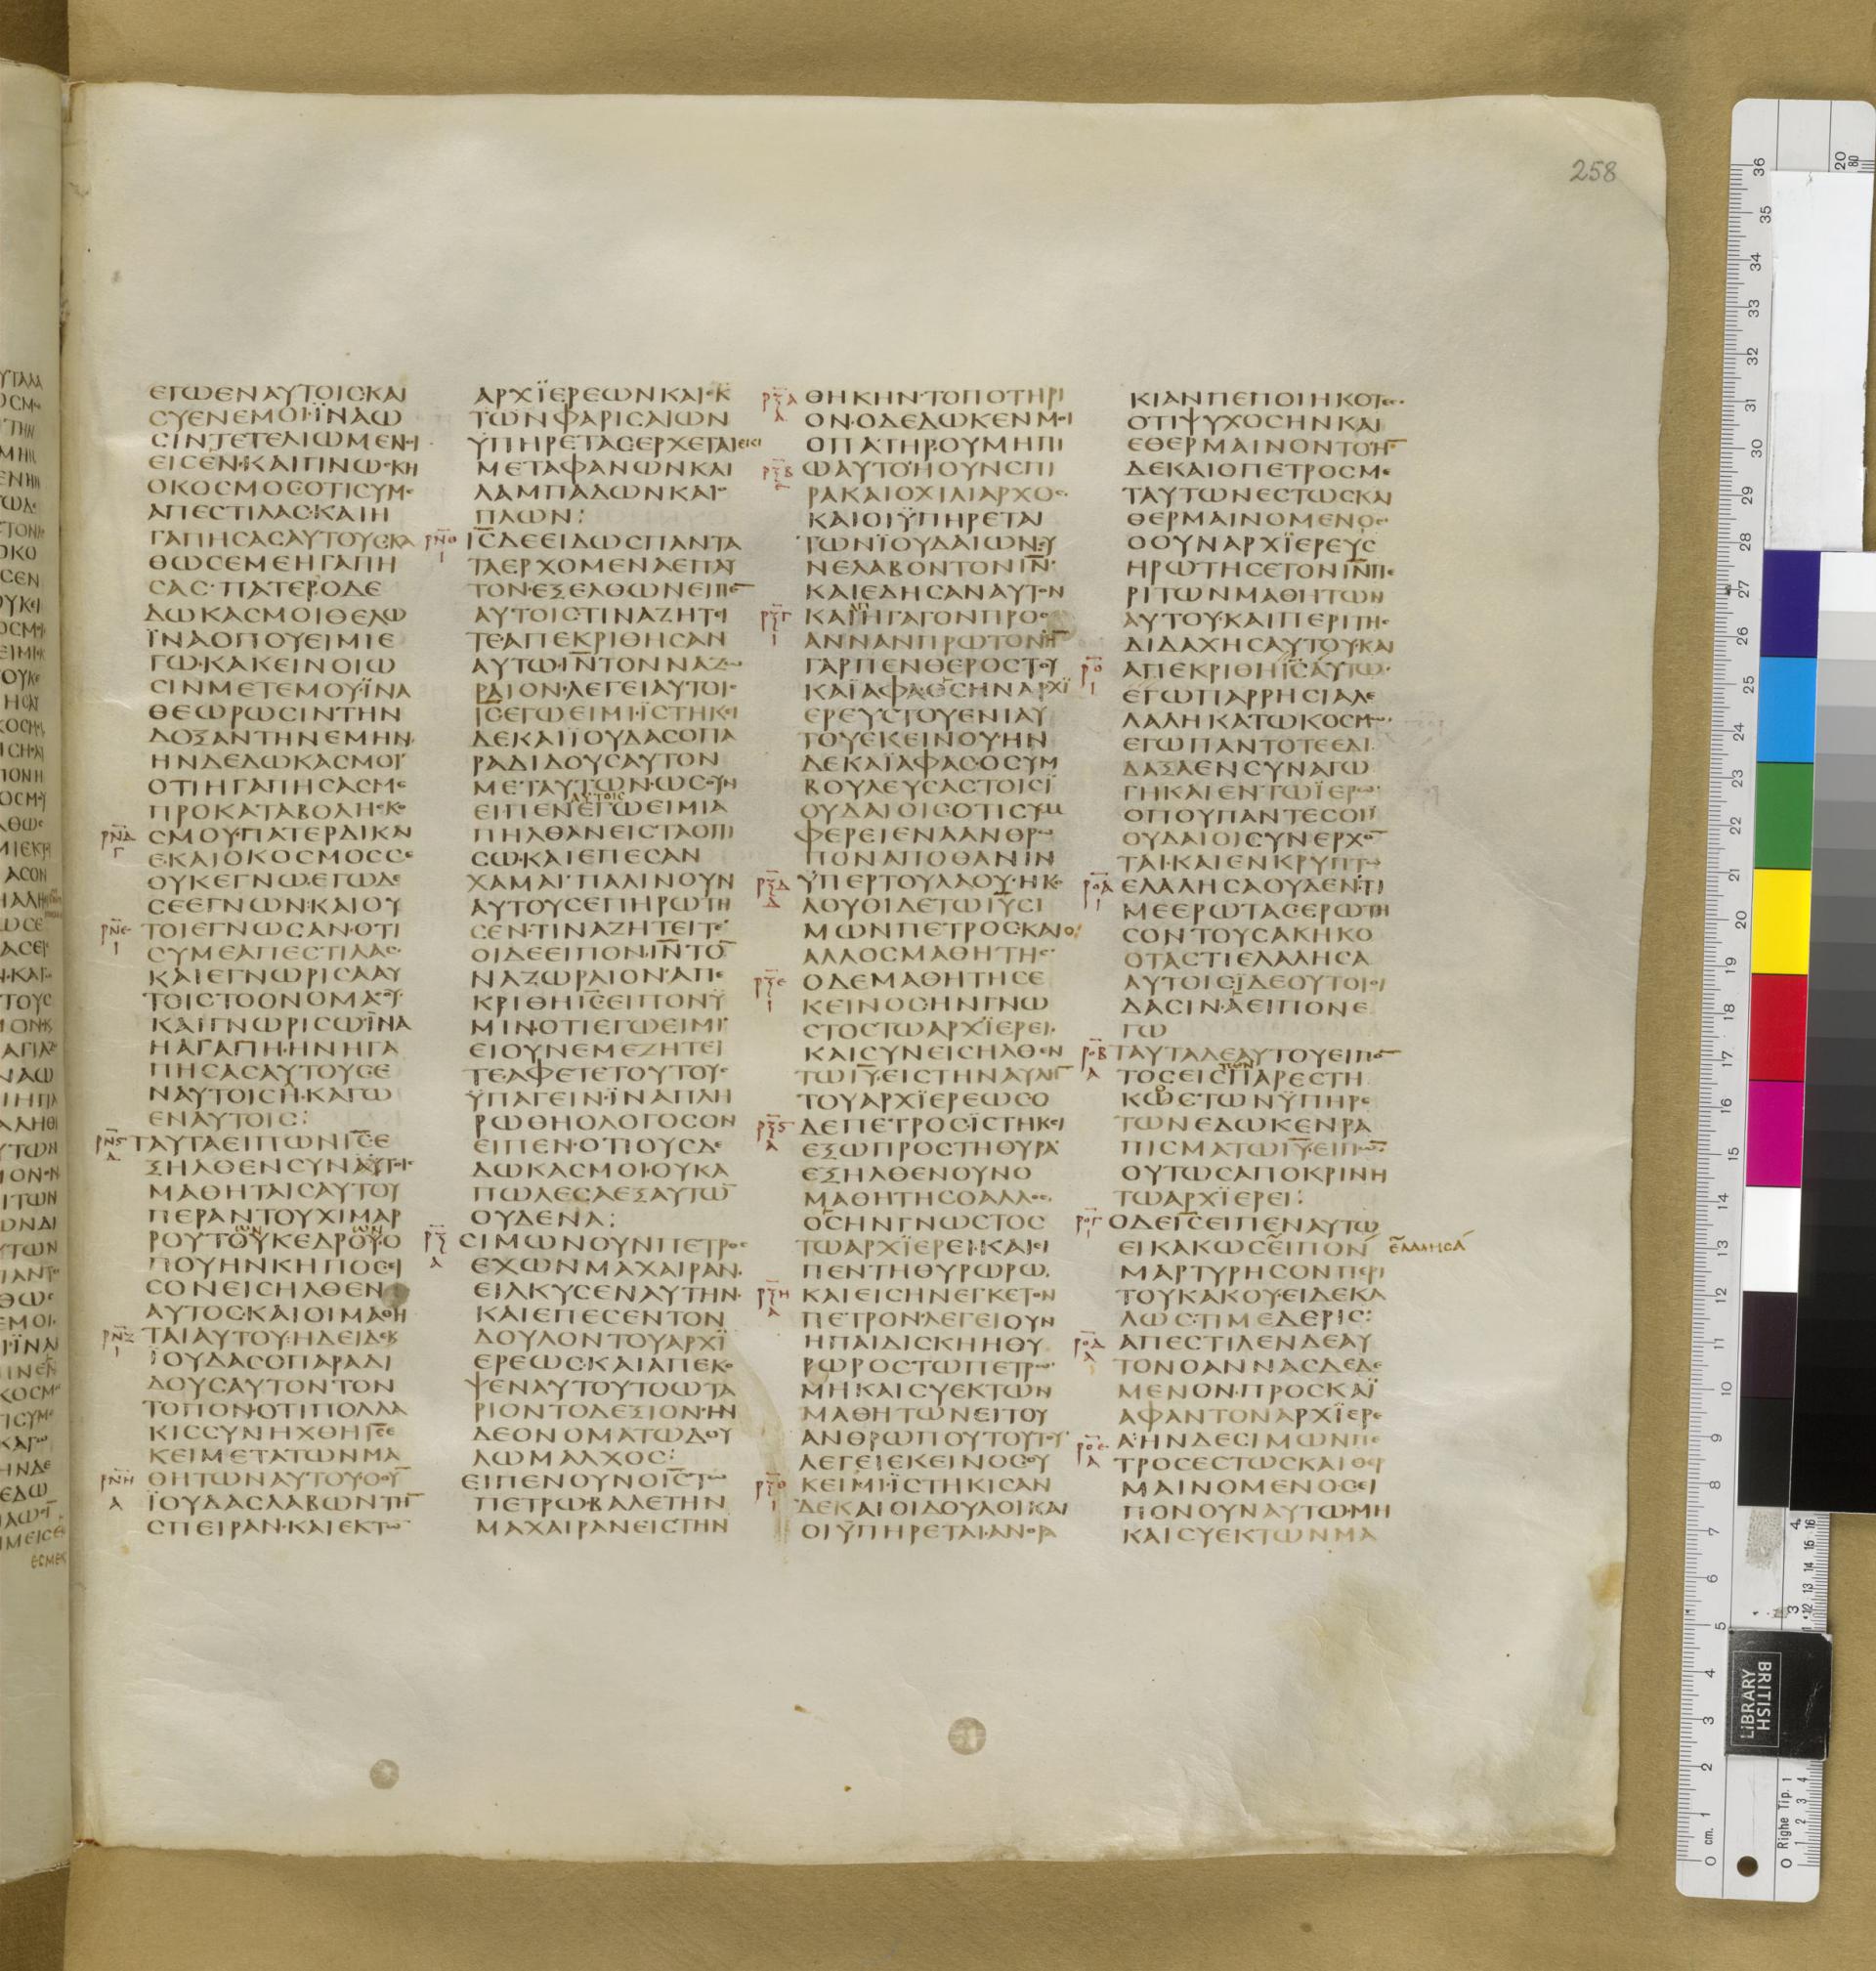 258
ΕΓΩΕΝΑΥΤΟΙϹΚΑΙ
ϹΥΕΝΕΜΟΙ·ΪΝΑΩ
ϹΙΝΤΕΤΕΛΙΩΜΕΝΟΙ
ΕΙϹΕΝ·ΚΑΙΓΙΝΩϹΚΗ
ΟΚΟϹΜΟϹΟΤΙϹΥΜΕ
ΑΠΕϹΤΙΛΑϹ·ΚΑΙΗ
ΓΑΠΗϹΑϹΑΥΤΟΥϹΚΑ
ΘΩϹΕΜΕΗΓΑΠΗ
ϹΑϹ·ΠΑΤΕΡ·ΟΔΕ
ΔΩΚΑϹΜΟΙΘΕΛΩ
ΪΝΑΟΠΟΥΕΙΜΙΕ
ΓΩ·ΚΑΚΕΙΝΟΙΩ
ϹΙΝΜΕΤΕΜΟΥ·ΪΝΑ
ΘΕΩΡΩϹΙΝΤΗΝ
ΔΟΞΑΝΤΗΝΕΜΗΝ
ΗΝΔΕΔΩΚΑϹΜΟΙ
ΟΤΙΗΓΑΠΗϹΑϹΜΕ
ΠΡΟΚΑΤΑΒΟΛΗϹΚΟ
ΡΝΔ Γ
ϹΜΟΥ·ΠΑΤΕΡΔΙΚΑΙ
ΕΚΑΙΟΚΟϹΜΟϹϹΕ
ΟΥΚΕΓΝΩ·ΕΓΩΔΕ
ϹΕΕΓΝΩΝ·ΚΑΙΟΥ
ΡΝΕ Ι
ΤΟΙΕΓΝΩϹΑΝ·ΟΤΙ
ϹΥΜΕΑΠΕϹΤΙΛΑϹ
ΚΑΙΕΓΝΩΡΙϹΑΑΥ
ΤΟΙϹΤΟΟΝΟΜΑϹΟΥ
ΚΑΙΓΝΩΡΙϹΩ·ΪΝΑ
ΗΑΓΑΠΗ·ΗΝΗΓΑ
ΠΗϹΑϹΑΥΤΟΥϹΕ
ΝΑΥΤΟΙϹΗ·ΚΑΓΩ
ΕΝΑΥΤΟΙϹ:
ΡΝϚ Α
ΤΑΥΤΑΕΙΠΩΝΙ̅Ϲ̅Ε
ΞΗΛΘΕΝϹΥΝΑΥΤΟΙ
ΜΑΘΗΤΑΙϹΑΥΤΟΥ
ΠΕΡΑΝΤΟΥΧΙΜΑΡ
ΡΟΥΤΟΥΚΕΔΡΟΥ·Ο
ΠΟΥΗΝΚΗΠΟϹΕΙ
ϹΟΝΕΙϹΗΛΘΕΝ
ΑΥΤΟϹ·ΚΑΙΟΙΜΑΘΗ
ΡΝΖ Ι
ΤΑΙΑΥΤΟΥ·ΗΔΕΙΔΕΚ
ΪΟΥΔΑϹΟΠΑΡΑΔΙ
ΔΟΥϹΑΥΤΟΝΤΟΝ
ΤΟΠΟΝ·ΟΤΙΠΟΛΛΑ
ΚΙϹϹΥΝΗΧΘΗΙ̅Ϲ̅Ε
ΚΕΙΜΕΤΑΤΩΝΜΑ
ΡΝΗ Α
ΘΗΤΩΝΑΥΤΟΥ·ΟΟΥ̅
ΪΟΥΔΑϹΛΑΒΩΝΤΗ̅
ϹΠΕΙΡΑΝ·ΚΑΙΕΚΤΩ̅
ΑΡΧΪΕΡΕΩΝΚΑΙΕΚ
ΤΩΝΦΑΡΙϹΑΙΩΝ
ΫΠΗΡΕΤΑϹΕΡΧΕΤΑΙΕΚΕΙ
ΜΕΤΑΦΑΝΩΝΚΑΙ
ΛΑΜΠΑΔΩΝΚΑΙΟ
ΠΛΩΝ:
ΡΝΘ Ι
Ι̅Ϲ̅ΔΕΕΙΔΩϹΠΑΝΤΑ
ΤΑΕΡΧΟΜΕΝΑΕΠΑΥ
ΤΟΝ·ΕΞΕΛΘΩΝΕΙΠΕ̅
ΑΥΤΟΙϹΤΙΝΑΖΗΤΕΙ
ΤΕΑΠΕΚΡΙΘΗϹΑΝ
ΑΥΤΩ·Ι̅Ν̅ΤΟΝΝΑΖΩ
ΡΑΙΟΝ·ΛΕΓΕΙΑΥΤΟΙϹ
Ι̅Ϲ̅ΕΓΩΕΙΜΙ·ΪϹΤΗΚΕΙ
ΔΕΚΑΙΪΟΥΔΑϹΟΠΑ
ΡΑΔΙΔΟΥϹΑΥΤΟΝ
ΜΕΤΑΥΤΩΝ·ΩϹΟΥΝ
ΑΥΤΟΙϹ
ΕΙΠΕΝΕΓΩΕΙΜΙΑ
ΠΗΛΘΑΝΕΙϹΤΑΟΠΙ
ϹΩ·ΚΑΙΕΠΕϹΑΝ
ΧΑΜΑΙ·ΠΑΛΙΝΟΥΝ
ΑΥΤΟΥϹΕΠΗΡΩΤΗ
ϹΕΝ·ΤΙΝΑΖΗΤΕΙΤΕ
ΟΙΔΕΕΙΠΟΝ·Ι̅Ν̅ΤΟ̅
ΝΑΖΩΡΑΙΟΝ·ΑΠΕ
ΚΡΙΘΗΙ̅Ϲ̅ΕΙΠΟΝΫ
ΜΙΝ·ΟΤΙΕΓΩΕΙΜΙ
ΕΙΟΥΝΕΜΕΖΗΤΕΙ
ΤΕΑΦΕΤΕΤΟΥΤΟΥϹ
ΫΠΑΓΕΙΝ·ΪΝΑΠΛΗ
ΡΩΘΗΟΛΟΓΟϹΟΝ
ΕΙΠΕΝ·ΟΤΙΟΥϹΔΕ
ΔΩΚΑϹΜΟΙ·ΟΥΚΑ
ΠΩΛΕϹΑΕΞΑΥΤΩ̅
ΟΥΔΕΝΑ:
ΡΞ Α
ϹΙΜΩΝΟΥΝΠΕΤΡΟϹ
ΕΧΩΝΜΑΧΑΙΡΑΝ·
ΕΙΛΚΥϹΕΝΑΥΤΗΝ·
ΚΑΙΕΠΕϹΕΝΤΟΝ
ΔΟΥΛΟΝΤΟΥΑΡΧΪ
ΕΡΕΩϹ·ΚΑΙΑΠΕΚΟ
ΨΕΝΑΥΤΟΥΤΟΩΤΑ
ΡΙΟΝΤΟΔΕΞΙΟΝ·ΗΝ
ΔΕΟΝΟΜΑΤΩΔΟΥ
ΛΩΜΑΛΧΟϹ:
ΕΙΠΕΝΟΥΝΟΙ̅Ϲ̅ΤΩ
ΠΕΤΡΩ·ΒΑΛΕΤΗΝ
ΜΑΧΑΙΡΑΝΕΙϹΤΗΝ
ΡΞΑ Α
ΘΗΚΗΝ·ΤΟΠΟΤΗΡΙ
ΟΝ·ΟΔΕΔΩΚΕΝΜΟΙ
ΟΠΑΤΗΡ·ΟΥΜΗΠΙ
ΡΞΒ
ΩΑΥΤΟ·ΗΟΥΝϹΠΙ
ΡΑΚΑΙΟΧΙΛΙΑΡΧΟϹ
ΚΑΙΟΙΫΠΗΡΕΤΑΙ
ΤΩΝΪΟΥΔΑΙΩΝ·ϹΥ
ΝΕΛΑΒΟΝΤΟΝΙ̅Ν̅·
ΚΑΙΕΔΗϹΑΝΑΥΤΟΝ
ΡΞΓ Ι
ΚΑΙΗΓΑΓΟΝΠΡΟϹ
ΑΝΝΑΝΠΡΩΤΟΝΗ̅
ΓΑΡΠΕΝΘΕΡΟϹΤΟΥ
ΚΑΪΑΦΑΟϹΗΝΑΡΧΪ
ΕΡΕΥϹΤΟΥΕΝΙΑΥ
ΤΟΥΕΚΕΙΝΟΥ·ΗΝ
ΔΕΚΑΪΑΦΑϹ·ΟϹΥΜ
ΒΟΥΛΕΥϹΑϹΤΟΙϹΪ
ΟΥΔΑΙΟΙϹΟΤΙϹΥΜ
ΦΕΡΕΙΕΝΑΑΝΘΡΩ
ΠΟΝΑΠΟΘΑΝΙΝ
ΡΞΔ Δ
ΫΠΕΡΤΟΥΛΑΟΥ·ΗΚΟ
ΛΟΥΟΙΔΕΤΩΙ̅Υ̅ϹΙ
ΜΩΝΠΕΤΡΟϹ·ΚΑΙΟ
ΑΛΛΟϹΜΑΘΗΤΗϹ
ΡΞΕ Ι
ΟΔΕΜΑΘΗΤΗϹΕ
ΚΕΙΝΟϹΗΝΓΝΩ
ϹΤΟϹΤΩΑΡΧΪΕΡΕΙ·
ΚΑΙϹΥΝΕΙϹΗΛΘΕΝ
ΤΩΙ̅Υ̅·ΕΙϹΤΗΝΑΥΛΗ̅
ΤΟΥΑΡΧΪΕΡΕΩϹΟ
ΡΞϚ Α
ΔΕΠΕΤΡΟϹ·ΪϹΤΗΚΕΙ
ΕΞΩΠΡΟϹΤΗΘΥΡΑ
ΕΞΗΛΘΕΝΟΥΝΟ
ΜΑΘΗΤΗϹΟΑΛΛΟϹ
ΟϹΗΝΓΝΩϹΤΟϹ
ΤΩΑΡΧΪΕΡΕΙ·ΚΑΙΕΙ
ΠΕΝΤΗΘΥΡΩΡΩ·
ΡΞΗ Α
ΚΑΙΕΙϹΗΝΕΓΚΕΤΟΝ
ΠΕΤΡΟΝ·ΛΕΓΕΙΟΥΝ
ΗΠΑΙΔΙϹΚΗΗΘΥ
ΡΩΡΟϹΤΩΠΕΤΡΩ
ΜΗΚΑΙϹΥΕΚΤΩΝ
ΜΑΘΗΤΩΝΕΙΤΟΥ
ΑΝΘΡΩΠΟΥΤΟΥΤΟΥ
ΛΕΓΕΙΕΚΕΙΝΟϹΟΥ
ΡΞΘ Ι
ΚΕΙΜΙ·ΪϹΤΗΚΙϹΑΝ
ΔΕΚΑΙΟΙΔΟΥΛΟΙΚΑΙ
ΟΙΫΠΗΡΕΤΑΙ·ΑΝΘΡΑ
ΚΙΑΝΠΕΠΟΙΗΚΟΤΕϹ
ΟΤΙΨΥΧΟϹΗΝΚΑΙ
ΕΘΕΡΜΑΙΝΟΝΤΟ·Η̅
ΔΕΚΑΙΟΠΕΤΡΟϹΜΕ
ΤΑΥΤΩΝΕϹΤΩϹΚΑΙ
ΘΕΡΜΑΙΝΟΜΕΝΟϹ
ΟΟΥΝΑΡΧΪΕΡΕΥϹ
ΗΡΩΤΗϹΕΤΟΝΙ̅Ν̅ΠΕ
ΡΙΤΩΝΜΑΘΗΤΩΝ
ΑΥΤΟΥ·ΚΑΙΠΕΡΙΤΗϹ
ΔΙΔΑΧΗϹΑΥΤΟΥ·ΚΑΙ
ΡΟ Ι
ΑΠΕΚΡΙΘΗΙ̅Ϲ̅ΑΥΤΩ·
ΕΓΩΠΑΡΡΗϹΙΑΛΕ
ΛΑΛΗΚΑΤΩΚΟϹΜΩ·
ΕΓΩΠΑΝΤΟΤΕΕΔΙ
ΔΑΞΑΕΝϹΥΝΑΓΩ
ΓΗΚΑΙΕΝΤΩΪΕΡΩ·
ΟΠΟΥΠΑΝΤΕϹΟΙΪ
ΟΥΔΑΙΟΙϹΥΝΕΡΧΟ̅
ΤΑΙ·ΚΑΙΕΝΚΡΥΠΤΩ
ΡΟΑ Ι
ΕΛΑΛΗϹΑΟΥΔΕΝ·ΤΙ
ΜΕΕΡΩΤΑϹ·ΕΡΩΤΗ
ϹΟΝΤΟΥϹΑΚΗΚΟ
ΟΤΑϹΤΙΕΛΑΛΗϹΑ
ΑΥΤΟΙϹΪΔΕΟΥΤΟΙΟΙ
ΔΑϹΙΝ·ΑΕΙΠΟΝΕ
ΓΩ
ΡΟΒ Α
ΤΑΥΤΑΔΕΑΥΤΟΥΕΙΠΟ̅
ΤΟϹΕΙϹΠΑΡΕϹΤΗ
ΚΩϹΤΩΝΫΠΗΡΕ
ΤΩΝΕΔΩΚΕΝΡΑ
ΠΙϹΜΑΤΩΙ̅Υ̅·ΕΙΠΩ̅
ΟΥΤΩϹΑΠΟΚΡΙΝΗ
ΤΩΑΡΧΪΕΡΕΙ:
ΡΟΓ Ι
ΟΔΕΙ̅Ϲ̅ΕΙΠΕΝΑΥΤΩ
ΕΙΚΑΚΩϹΕΙΠΟΝ ΕΛΑΛΗϹΑ
ΜΑΡΤΥΡΗϹΟΝΠΕΡΙ
ΤΟΥΚΑΚΟΥ·ΕΙΔΕΚΑ
ΛΩϹ·ΤΙΜΕΔΕΡΙϹ:
ΡΟΔ Α
ΑΠΕϹΤΙΛΕΝΔΕΑΥ
ΤΟΝΟΑΝΝΑϹΔΕΔΕ
ΜΕΝΟΝ·ΠΡΟϹΚΑΪ
ΑΦΑΝΤΟΝΑΡΧΪΕΡΕ
ΡΟΕ Α
Α·ΗΝΔΕϹΙΜΩΝΠΕ
ΤΡΟϹΕϹΤΩϹΚΑΙΘΕΡ
ΜΑΙΝΟΜΕΝΟϹΕΙ
ΠΟΝΟΥΝΑΥΤΩ·ΜΗ
ΚΑΙϹΥΕΚΤΩΝΜΑ
BRITISH
LIBRARY
0 cm. 1 2 3 4 5 6 7 8 9 10 11 12 13 14 15 16 17 18 19 20 21 22 23 24 25 26 27 28 29 30 31 32 33 34 35 36
Righe Tip. 1